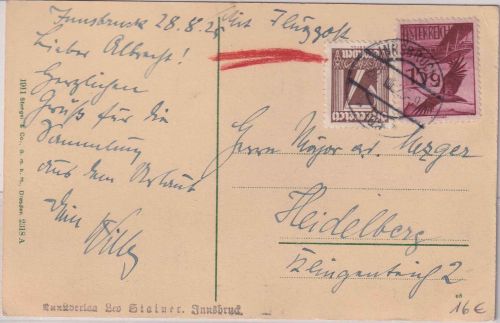 Innsbruck 28.8.25
Mit Flugpost
Lieber Albrecht!
Herzlichen
Gruß für die
Sammlung
aus dem Urlaub
Dein
Willy
Herrn Major a. Metzger
Heidelberg
Klingenteich 2
ÖSTERREICH
15g
INNSBRUCK
1911 Stengel & Co., G. m. b. H., Dresden 29518 A
Kunstverlag Leo Stainer, Innsbruck.
16€